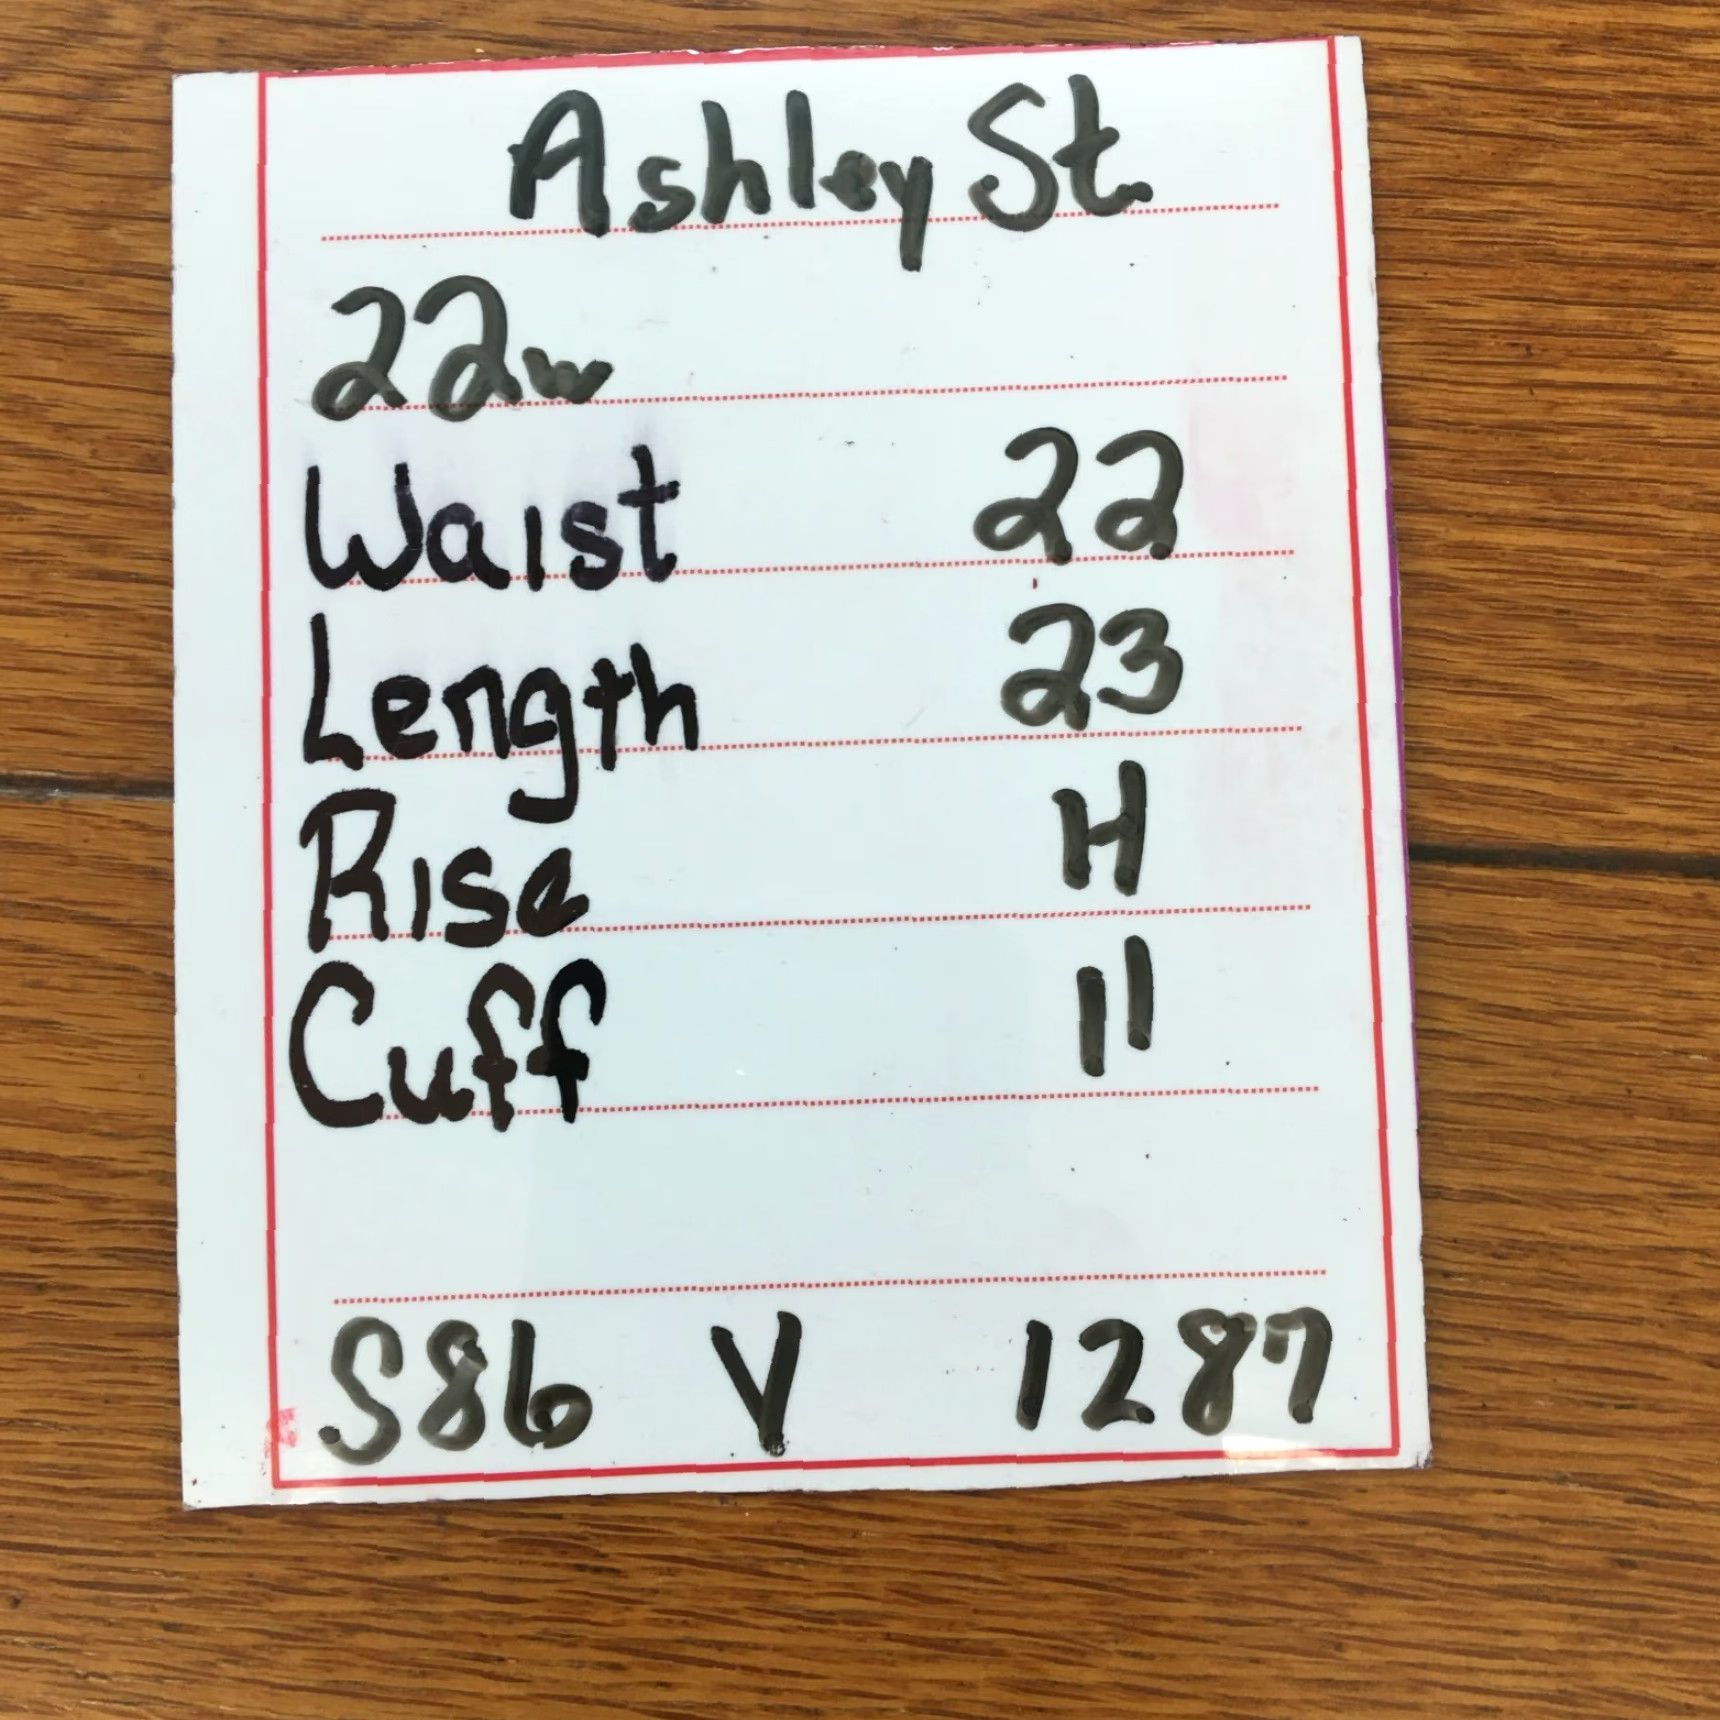 Ashley St.
22w
Waist 22
Length 23
Rise H
Cuff 11
S86 V 1287